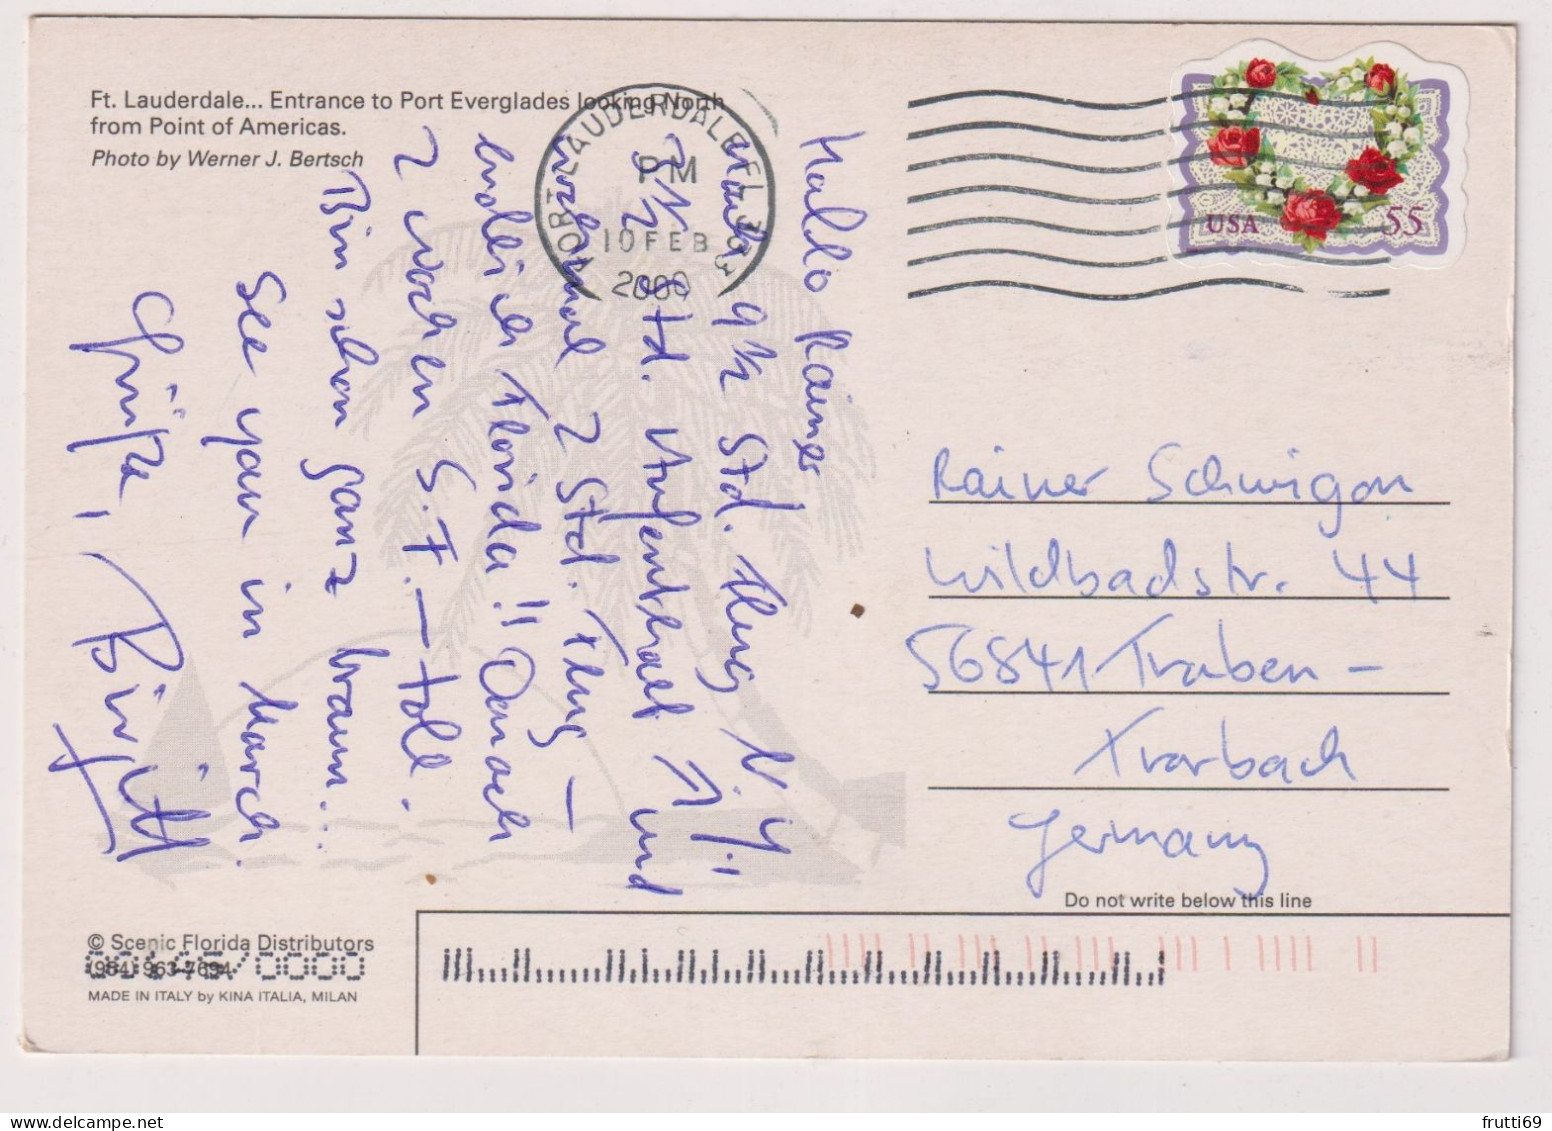 Ft. Lauderdale... Entrance to Port Everglades looking North
from Point of Americas.
Photo by Werner J. Bertsch
FORT LAUDERDALE FL 333
PM
10 FEB
2000
USA 55
Hallo Rainer
nach 9 ½ Std. Flug N.Y.,
3 ½ Std. Aufenthalt und
nochmal 2 Std. Flug –
endlich Florida!! Danach
2 Wochen S.F. – toll.
Bin schon ganz braun..
See you in March.
Grüße,
Birgitt
Rainer Schwigon
Wildbadstr. 44
56841 Traben –
Trarbach
Germany
Do not write below this line
© Scenic Florida Distributors
(954) 963-7694
MADE IN ITALY by KINA ITALIA, MILAN
frutti69